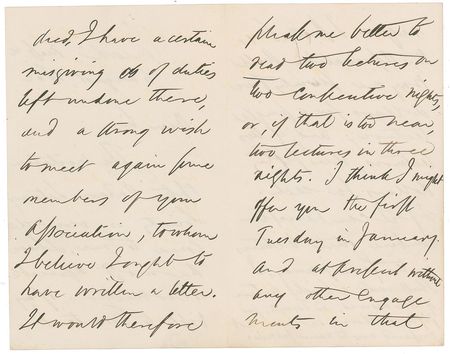 died, I have a certain
misgiving of duties
left undone there,
and a strong wish
to meet again some
members of your
Association, to whom
I believe I ought to
have written a letter.
It would therefore
please me better to
read two lectures on
two consecutive nights,
or, if that is too near,
two lectures in three
nights. I think I might
offer you the first
Tuesday in January.
and at present without
any other engage
ments in that